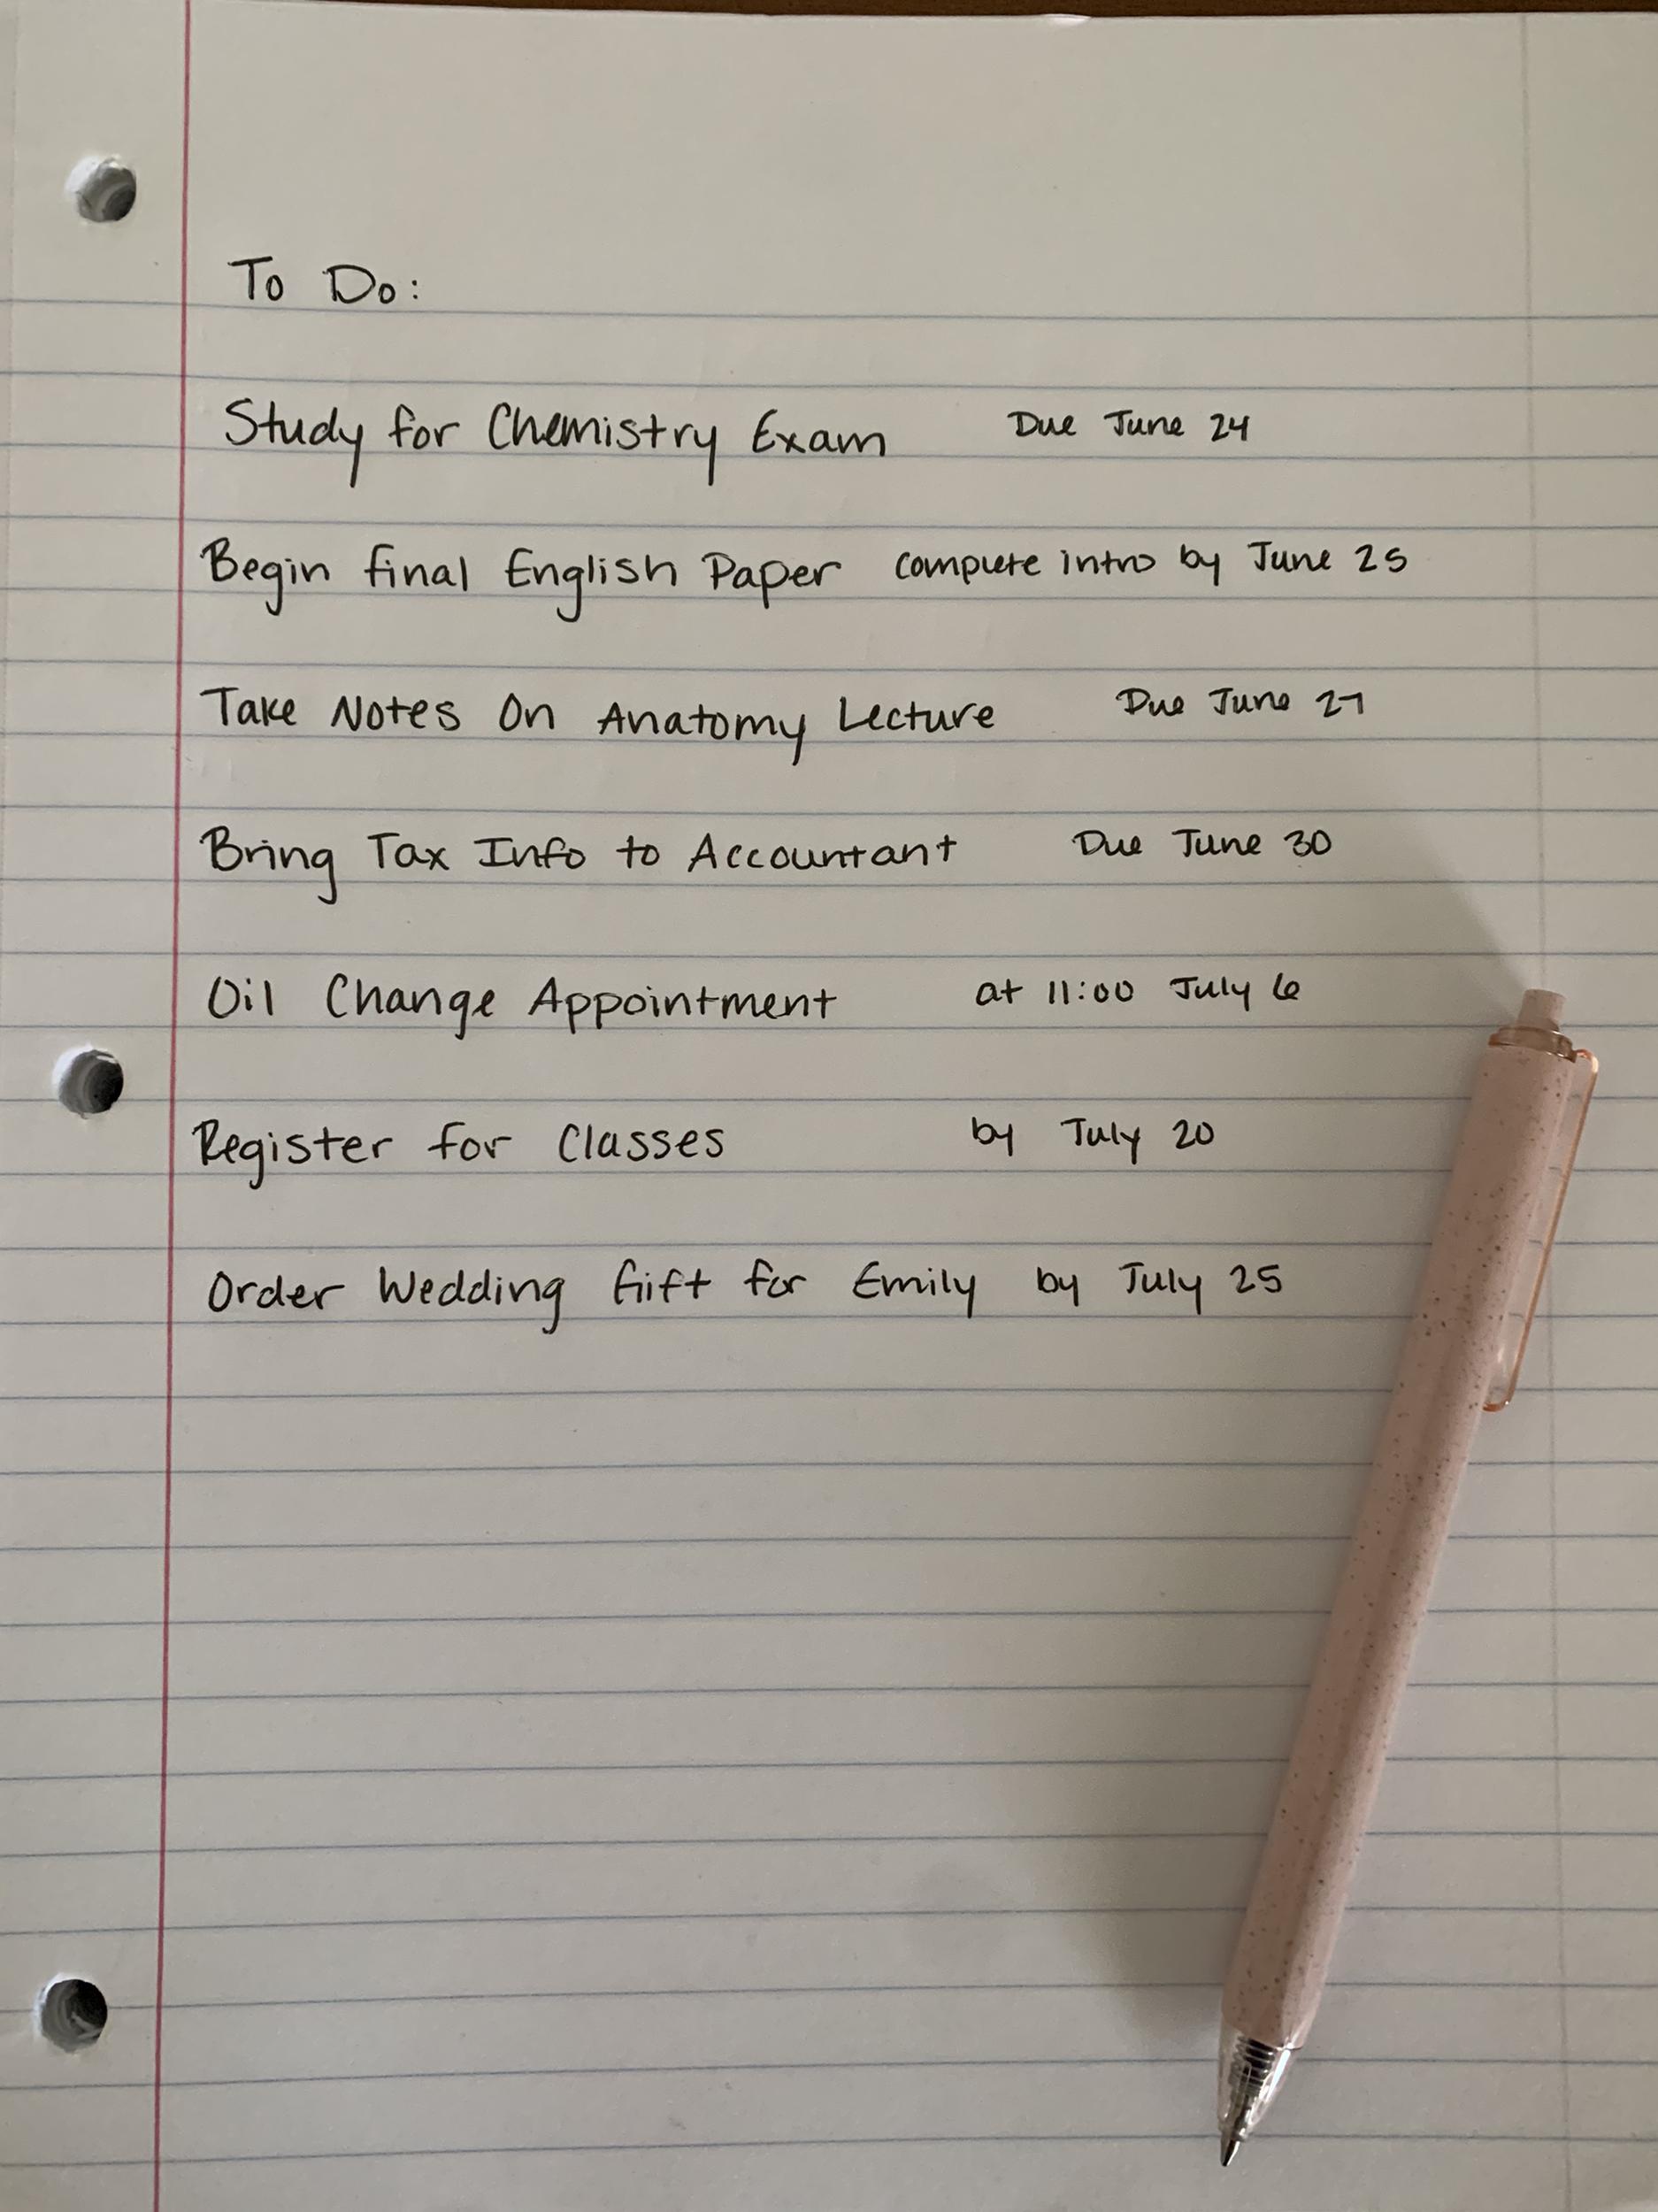 To Do:
Study for Chemistry Exam Due June 24
Begin final English Paper complete intro by June 25
Take Notes On Anatomy Lecture Due June 27
Bring Tax Info to Accountant Due June 30
Oil Change Appointment at 11:00 July 6
Register for Classes by July 20
Order Wedding Gift for Emily by July 25